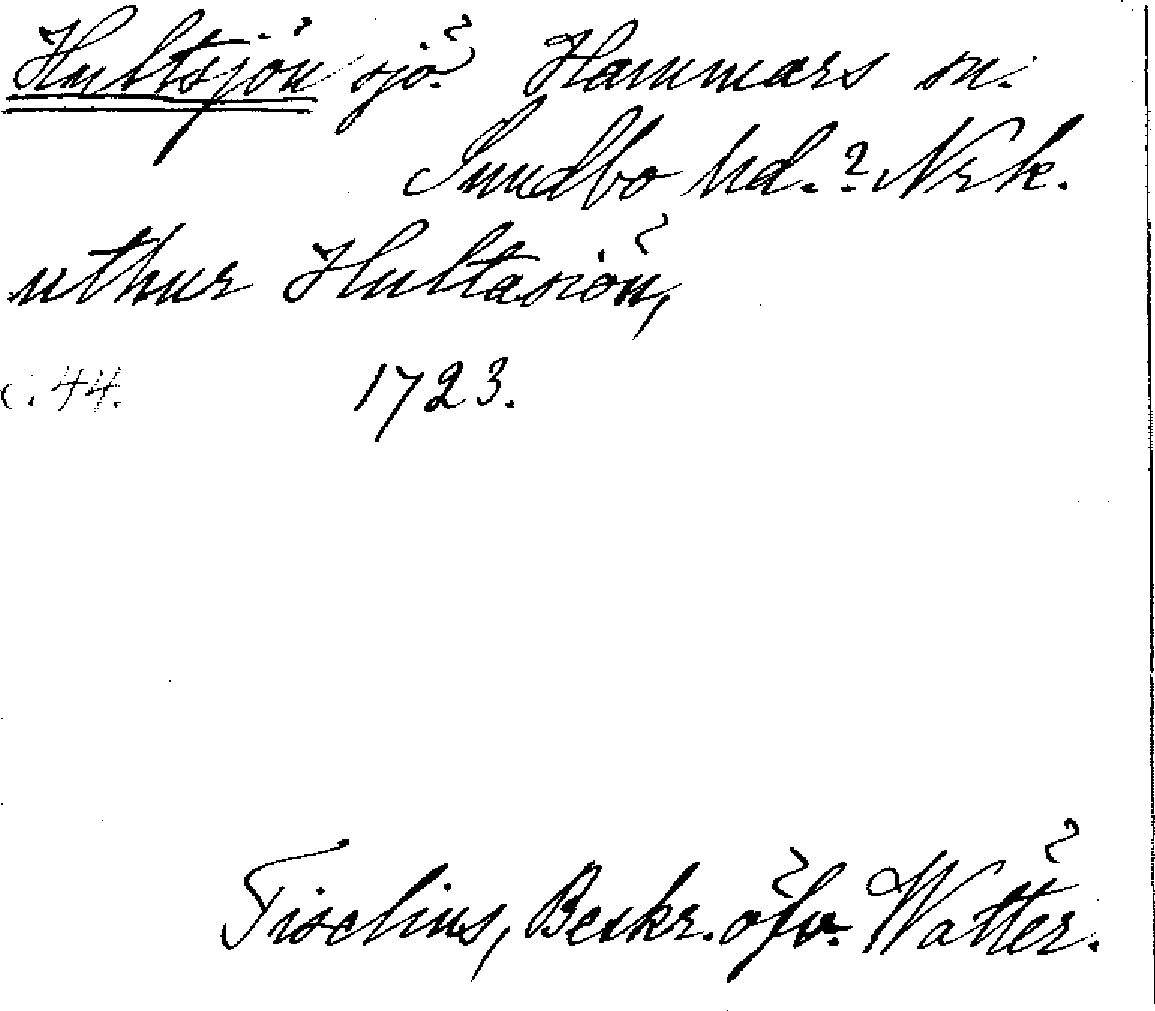 Hultsjön sjö. Hammars sn.
Sundbo hd.? Nrk.
uthur Hultasiön,
c. 44. 1723.
Tiselius, Beskr. öfv. Wätter.